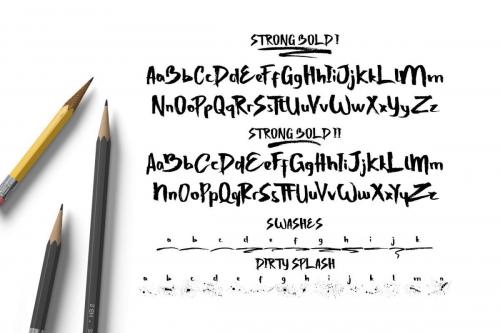 STRONG BOLD I
AaBbCcDdEeFfGgHhIiJjKkLlMm
NnOoPpQqRrSsTtUuVvWwXxYyZz
STRONG BOLD II
AaBbCcDdEeFfGgHhIiJjKkLlMm
NnOoPpQqRrSsTtUuVvWwXxYyZz
SWASHES
a b c d e f g h i j k
DIRTY SPLASH
a b c d e f g h i j k l m n
HB 2